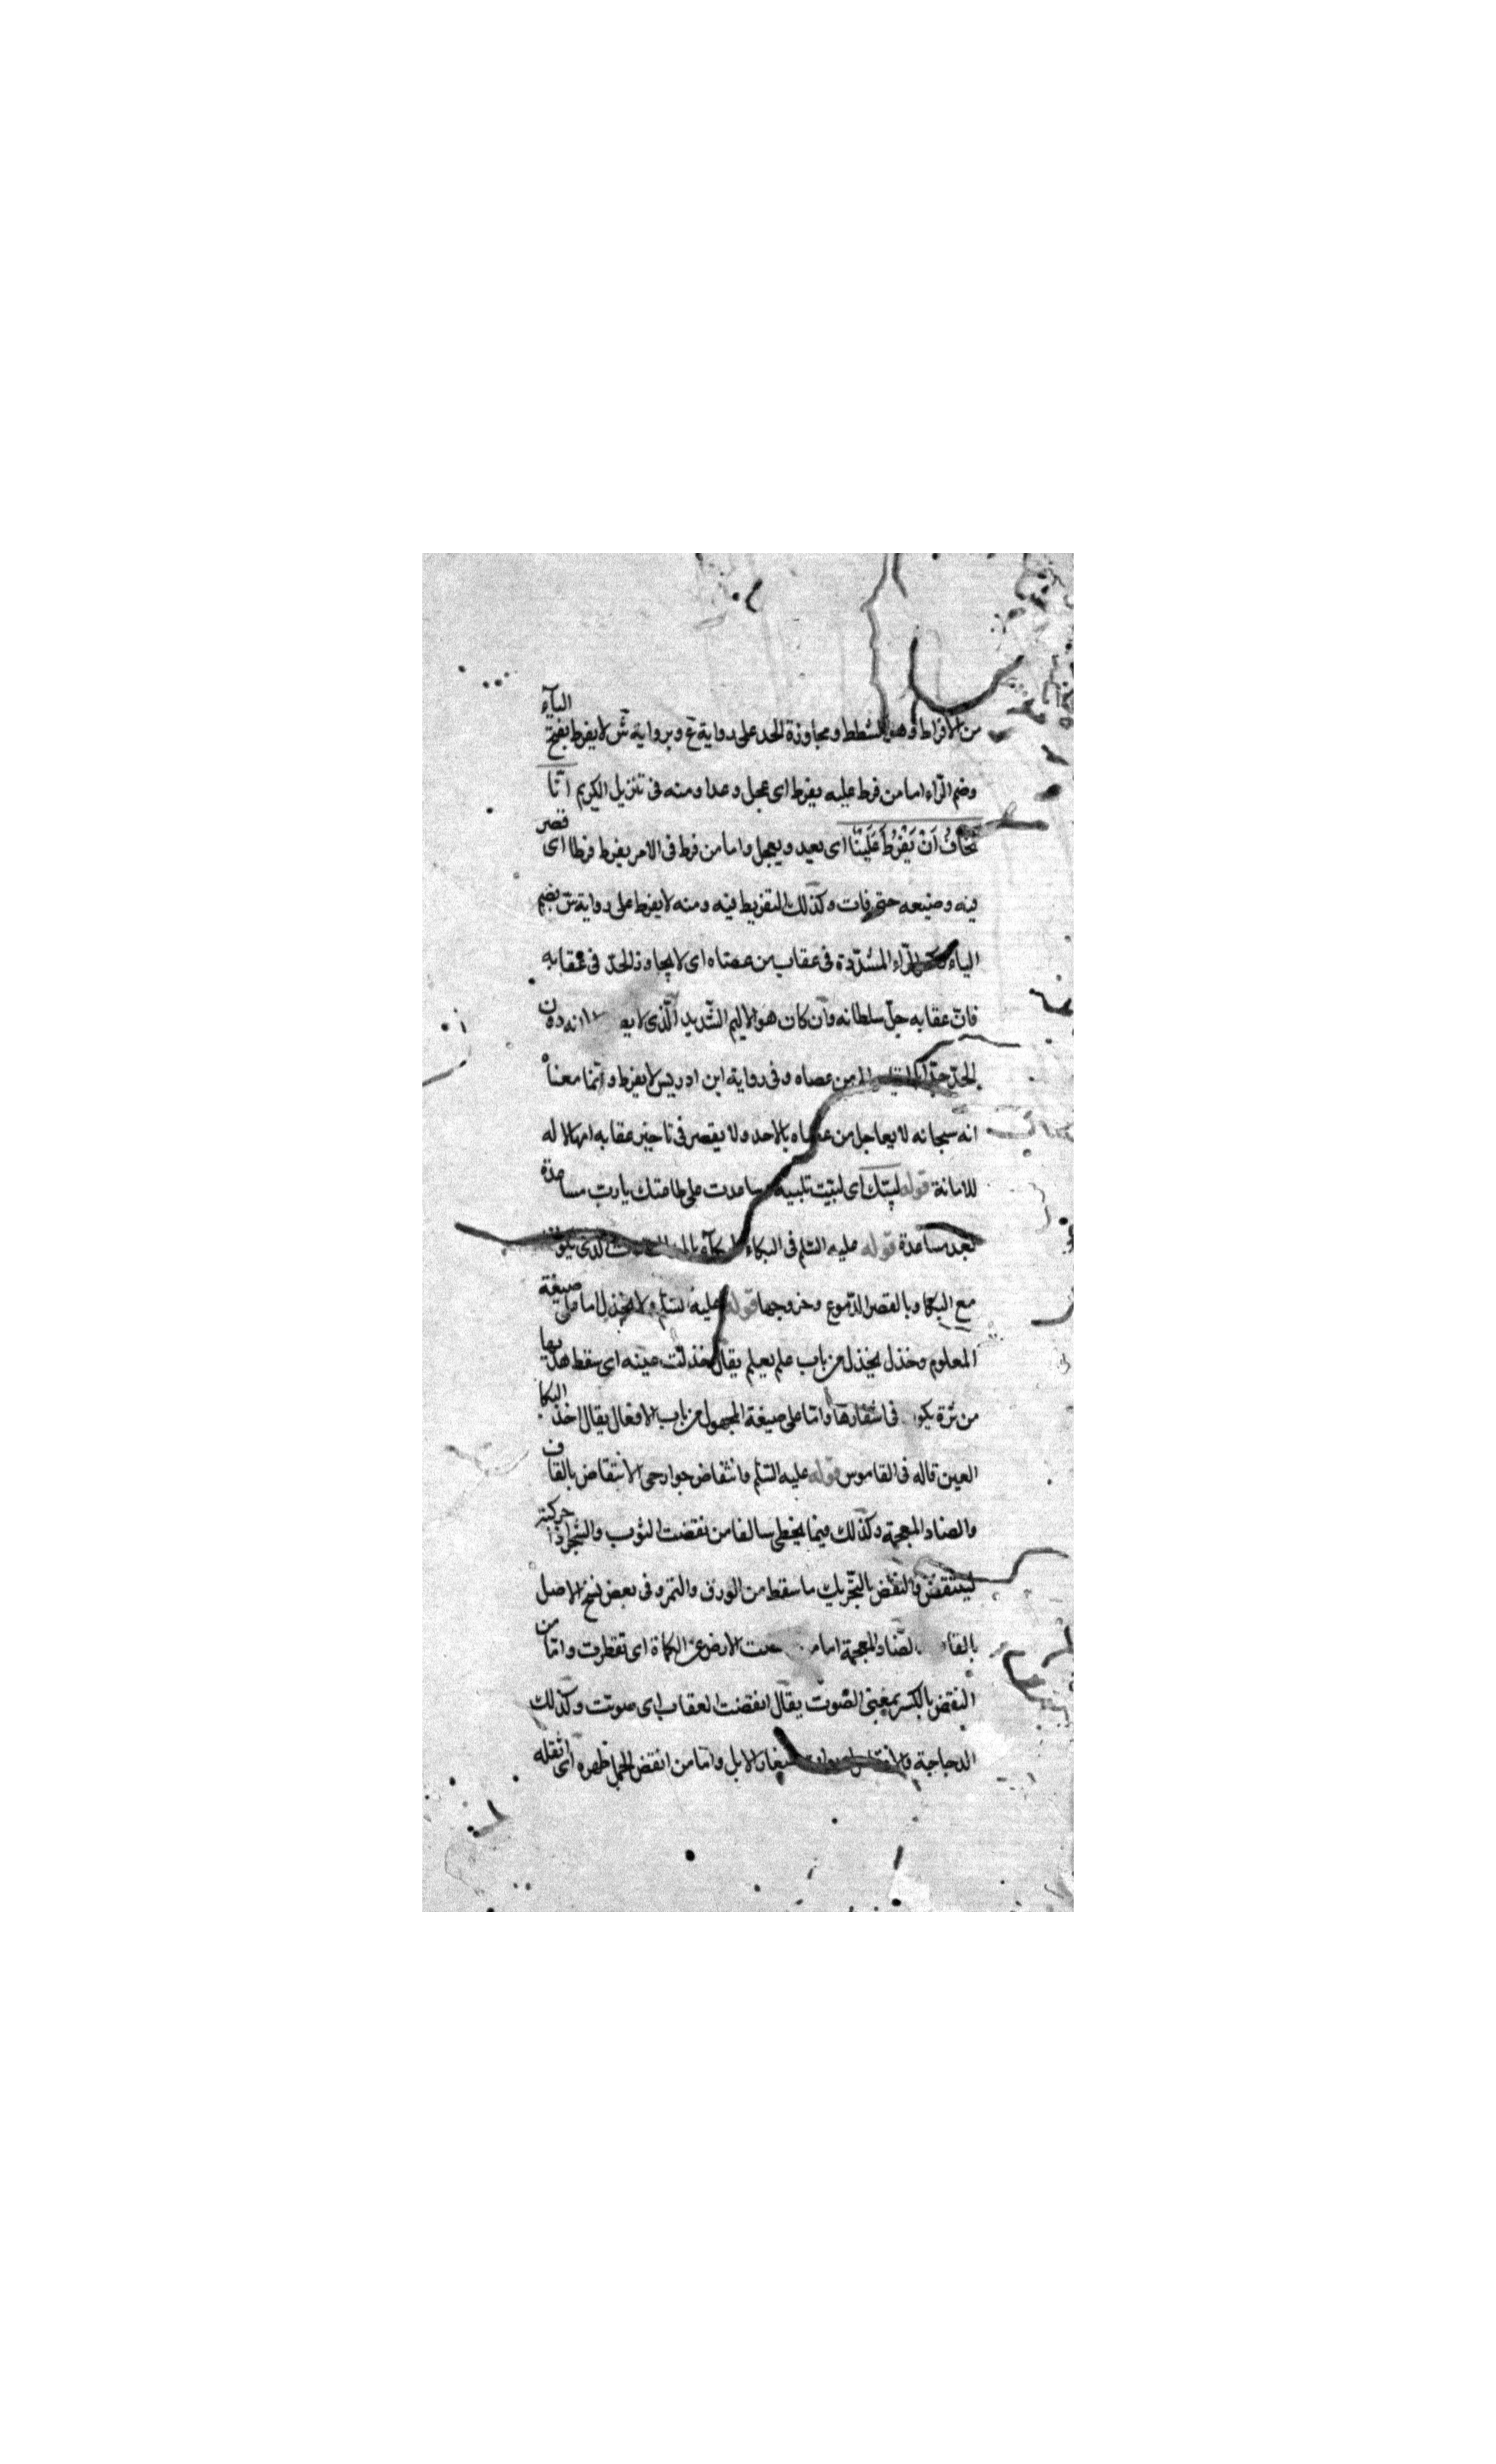 من الافراط وهو الشطط ومجاوزة الحد على رواية ع وبرواية ش لا يفرط بفتح الياء
وضم الراء اما من فرط عليه يفرط اى عجل وعدا ومنه فى تنزيل الكريم اننا
نخاف أن يفرط علينا اى يعيد ويعجل واما من فرط فى الامر يفرط فرطا اى قصر
فيه وضيعه حتى فات وكذلك التفريط فيه ومنه لا يفرط على رواية ش بضم
الياء الراء المشددة فى عقاب من عصاه اى لا يجاوز الحد فى عقابه
فان عقابه جل سلطانه وان كان هو الاليم الشديد الذى لا
الحد من عصاه وفى رواية ابن ادريس لا يفرط وانما معناه
انه سبحانه لا يعاجل من عصاه بالاحد ولا يقصر فى تاخير عقابه امهالا له
للامانة قوله لبيك اى لبيت تلبية وساعدت على طاعتك يارب مساعدة
بعد مساعدة قوله عليه السلم فى البكاء الذى يكون
مع البكا وبالقصر الدموع وخروجها قوله عليه السلم ولا يخذل اما على صيغة
المعلوم وخذل يخذل من باب علم يعلم يقال خذلت عينه اى سقط هدبها
من بثرة فى اشفارها واما على صيغة المجهول من باب الافعال يقال اخذل البكا
العين قاله فى القاموس قوله عليه السلم وانتقاض جوارحى الانتقاض بالقاف
والضاد المعجمة وكذلك فيما سالفا من نفضت الثوب والشجر اذا حركته
لينتفض والنفض بالتحريك ما سقط من الورق والثمر وفى بعض نسخ الاصل
بالفاء الضاد المعجمة اما من الارض عن الكماة اى تفطرت واما من
النقض بالكسر بمعنى الصوت يقال انقضت العقاب اى صوتت وكذلك
الدجاجة صغار الابل واما من انقض الحمل ظهره اى اثقله